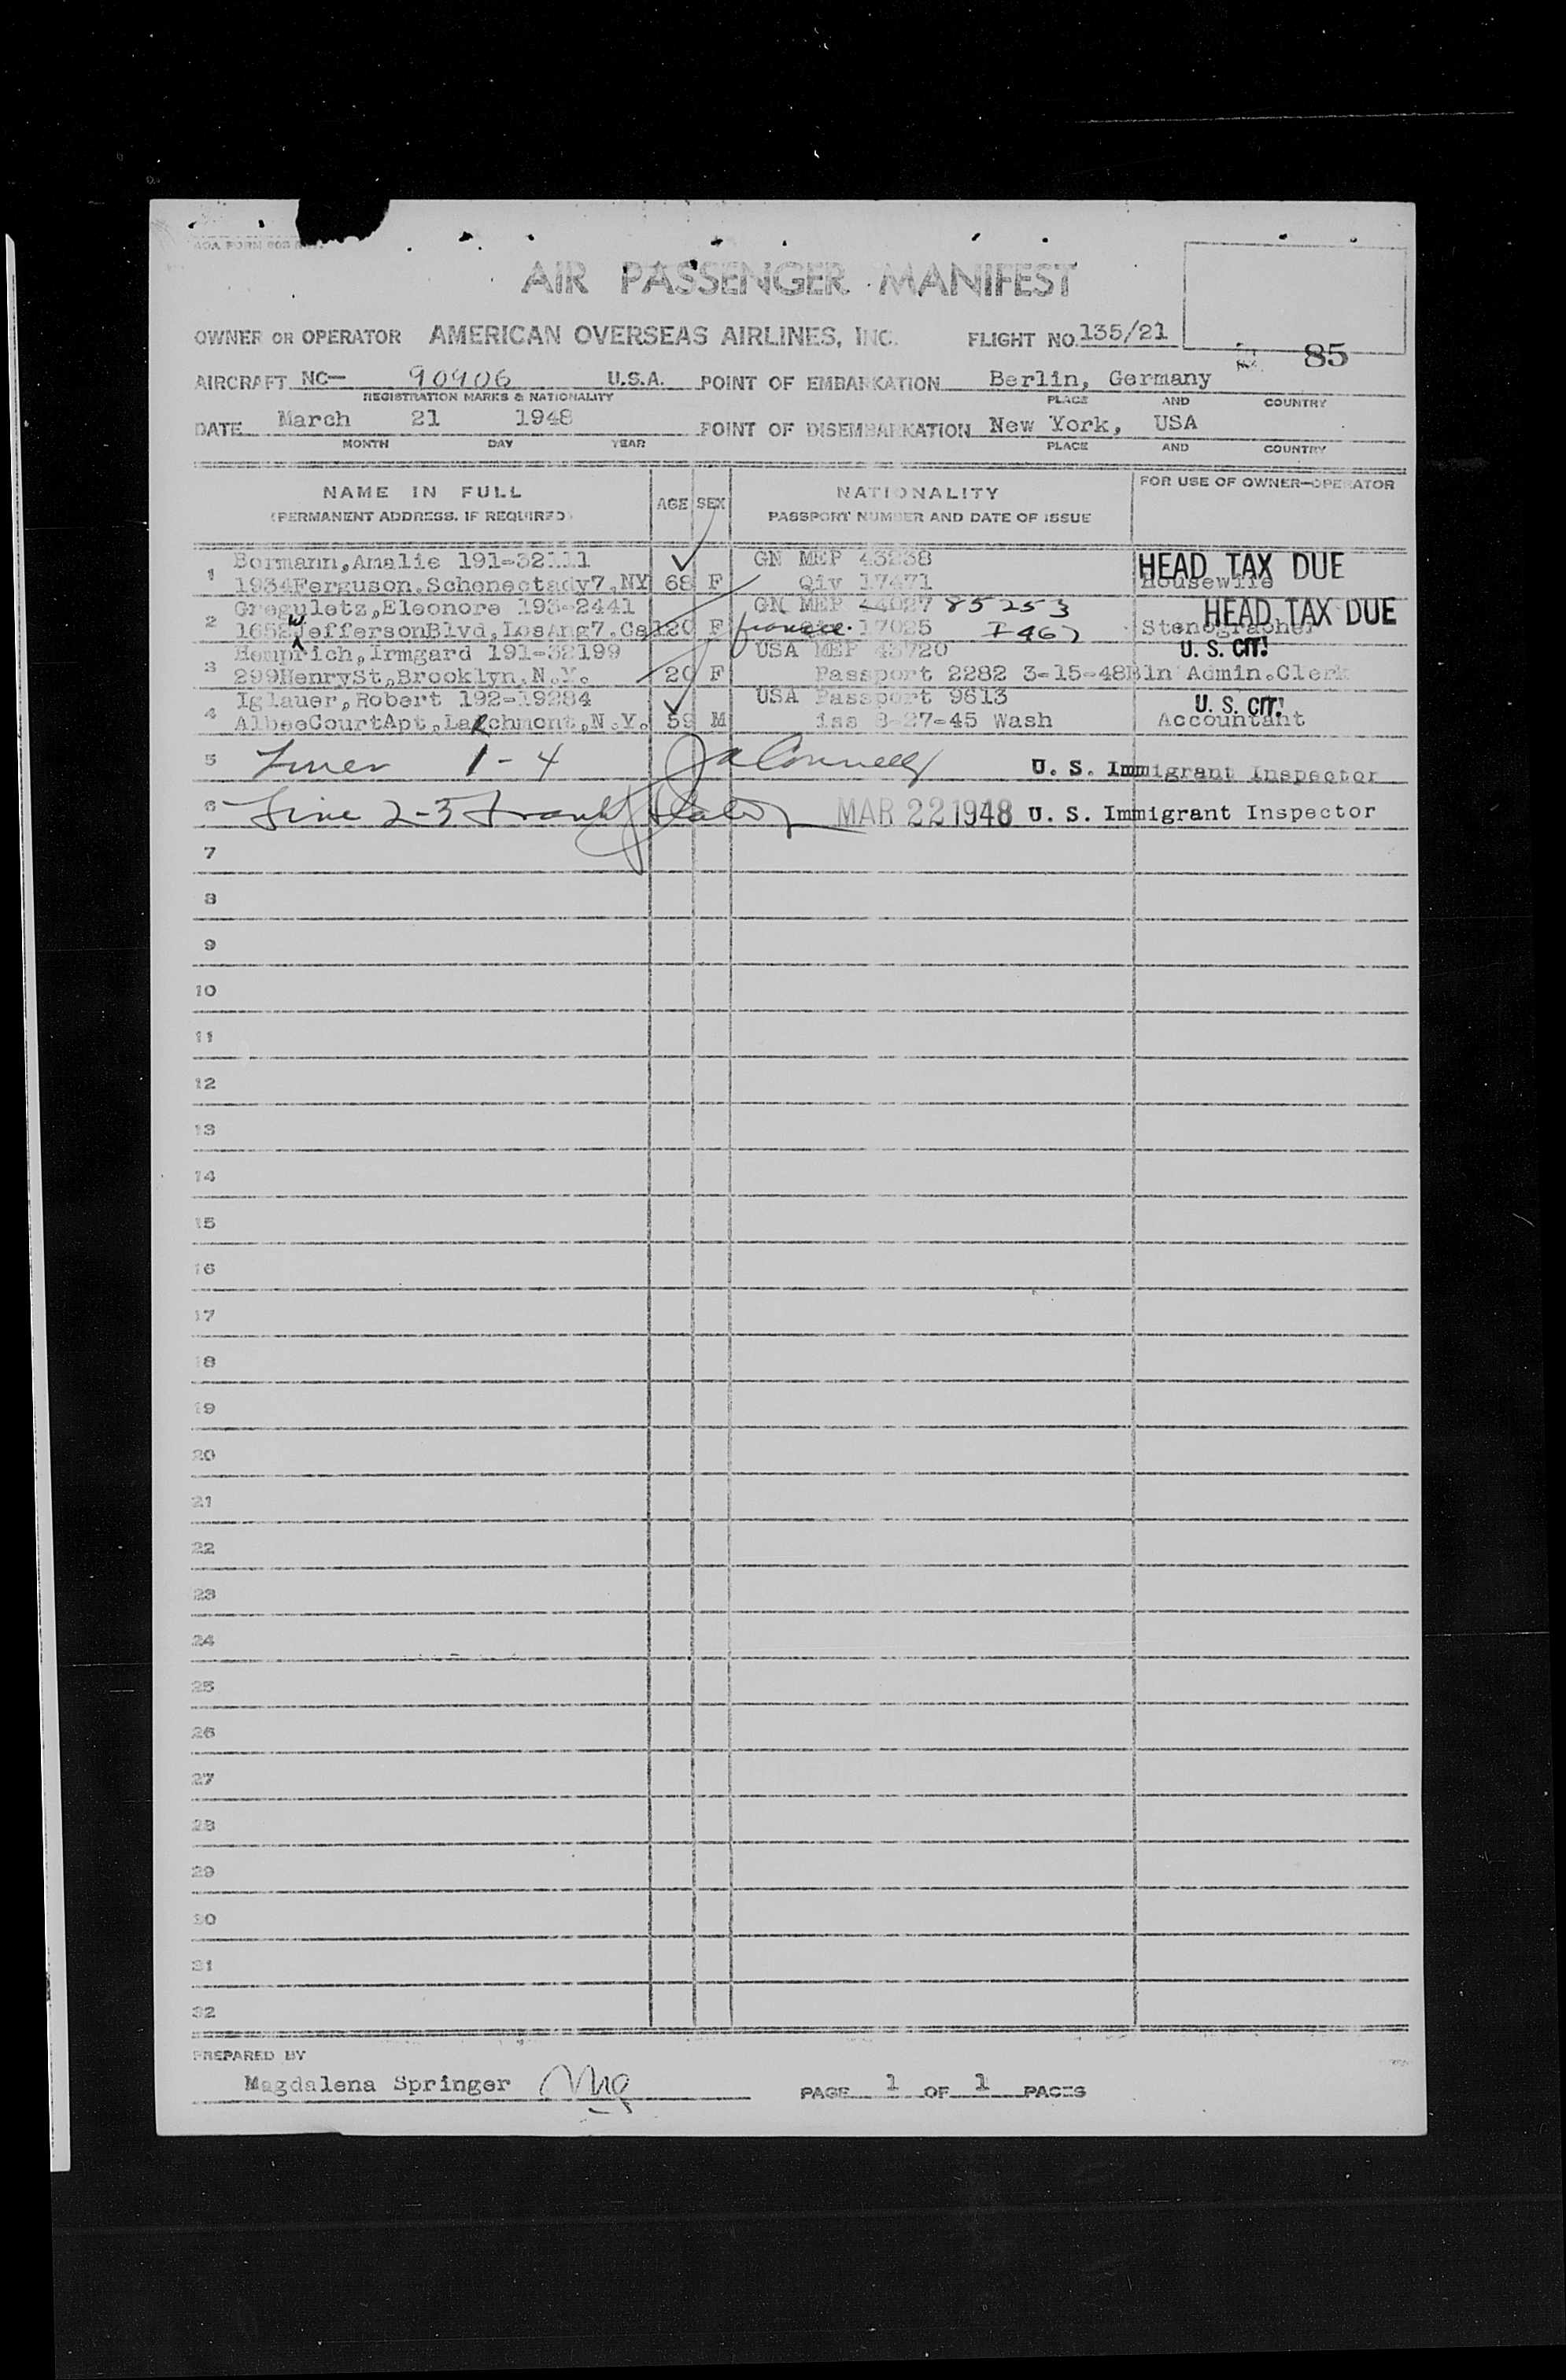 AOA FORM 608
AIR PASSENGER MANIFEST
OWNER OR OPERATOR AMERICAN OVERSEAS AIRLINES, INC. FLIGHT NO. 135/21
85
AIRCRAFT NC- 90906 U.S.A. POINT OF EMBARKATION Berlin, Germany
REGISTRATION MARKS & NATIONALITY PLACE AND COUNTRY
DATE March 21 1948 POINT OF DISEMBARKATION New York, USA
MONTH DAY YEAR PLACE AND COUNTRY
NAME IN FULL AGE SEX NATIONALITY FOR USE OF OWNER-OPERATOR
(PERMANENT ADDRESS, IF REQUIRED) PASSPORT NUMBER AND DATE OF ISSUE
Bormann,Amalie 191-32111 GN MEP 43238 HEAD TAX DUE
1 1934Ferguson,Schenectady7,NY 68 F Qiv 17471 Housewife
Greguletz,Eleonore 193-2441 GN MEP 44027 85253 HEAD TAX DUE
2 1652 W JeffersonBlvd,LosAng7,Cal 20 F 17025 I 467 Stenographer
Hemprich,Irmgard 191-32199 USA MEP 43720 U. S. CIT.
3 299HenrySt,Brooklyn,N.Y. 20 F Passport 2282 3-15-48Bln Admin.Clerk
Iglauer,Robert 192-19284 USA Passport 9613 U. S. CIT.
4 AlbeeCourtApt,LaRchmont,N.Y. 59 M iss 8-27-45 Wash Accountant
5 Lines 1-4 J A Connelly U. S. Immigrant Inspector
6 Line 2-3 Frank MAR 22 1948 U. S. Immigrant Inspector
7
8
9
10
11
12
13
14
15
16
17
18
19
20
21
22
23
24
25
26
27
28
29
30
31
32
PREPARED BY
Magdalena Springer PAGE 1 OF 1 PAGES